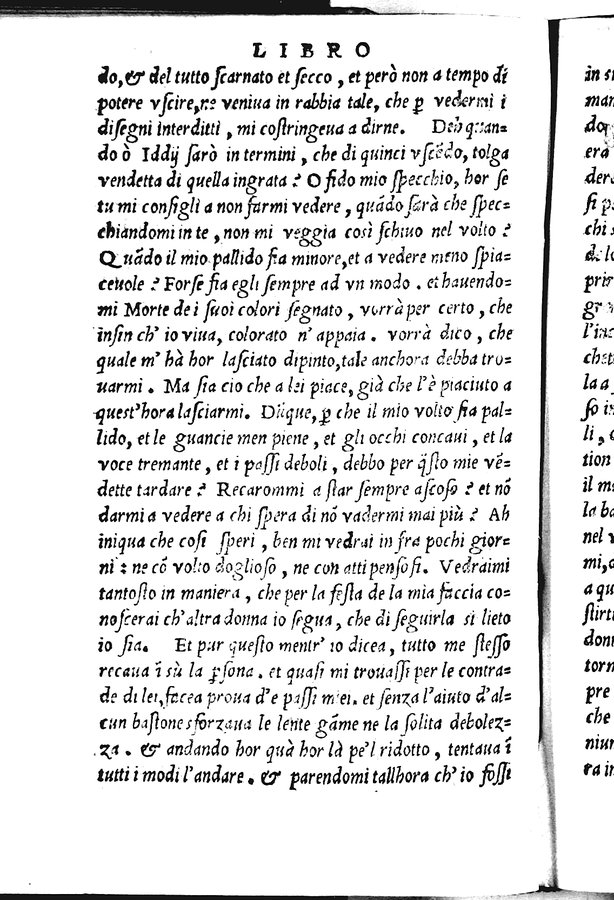 LIBRO
do, & del tutto ſcarnato et ſecco, et però non a tempo di
potere vſcire, ne veniua in rabbia tale, che ꝑ vedermi i
diſegni interditti, mi coſtringeua a dirne. Deh quan=
do ò Iddij ſarò in termini, che di quinci vſcẽdo, tolga
vendetta di quella ingrata? O fido mio ſpecchio, hor ſe
tu mi conſigli a non farmi vedere, quãdo ſarà che ſpec=
chiandomi in te, non mi veggia così ſchiuo nel volto?
Quãdo il mio pallido fia minore, et a vedere meno ſpia=
ceuole? Forſe fia egli ſempre ad vn modo. et hauendo=
mi Morte de i ſuoi colori ſegnato, vorrà per certo, che
inſin ch' io viua, colorato n' appaia. vorrà dico, che
quale m' hà hor laſciato dipinto, tale anchora debba tro=
uarmi. Ma ſia cio che a lei piace, già che l'è piaciuto a
quest'hora laſciarmi. Dũque, ꝑ che il mio volto ſia pal=
lido, et le guancie men piene, et gli occhi concaui, et la
voce tremante, et i paſſi deboli, debbo per q̃ſto mie vẽ=
dette tardare? Recarommi a ſtar ſempre aſcoſo? et nõ
darmi a vedere a chi ſpera di nõ vadermi mai più? Ah
iniqua che coſi ſperi, ben mi vedrai in fra pochi gior=
ni: ne cõ volto doglioſo, ne con atti penſoſi. Vedraimi
tantoſto in maniera, che per la feſta de la mia faccia co=
noſcerai ch' altra donna io ſegua, che di ſeguirla sì lieto
io ſia. Et pur queſto mentr' io dicea, tutto me ſteſſo
recaua ĩ sù la ꝑſona. et quaſi mi trouaſſi per le contra=
de di lei, facea proua d'e paſſi miei. et ſenza l'aiuto d'al=
cun baſtone sforzaua le lente gãme ne la ſolita debolez=
za. & andando hor quà hor là pe'l ridotto, tentaua ĩ
tutti i modi l'andare. & parendomi tallhora ch' io foſſi